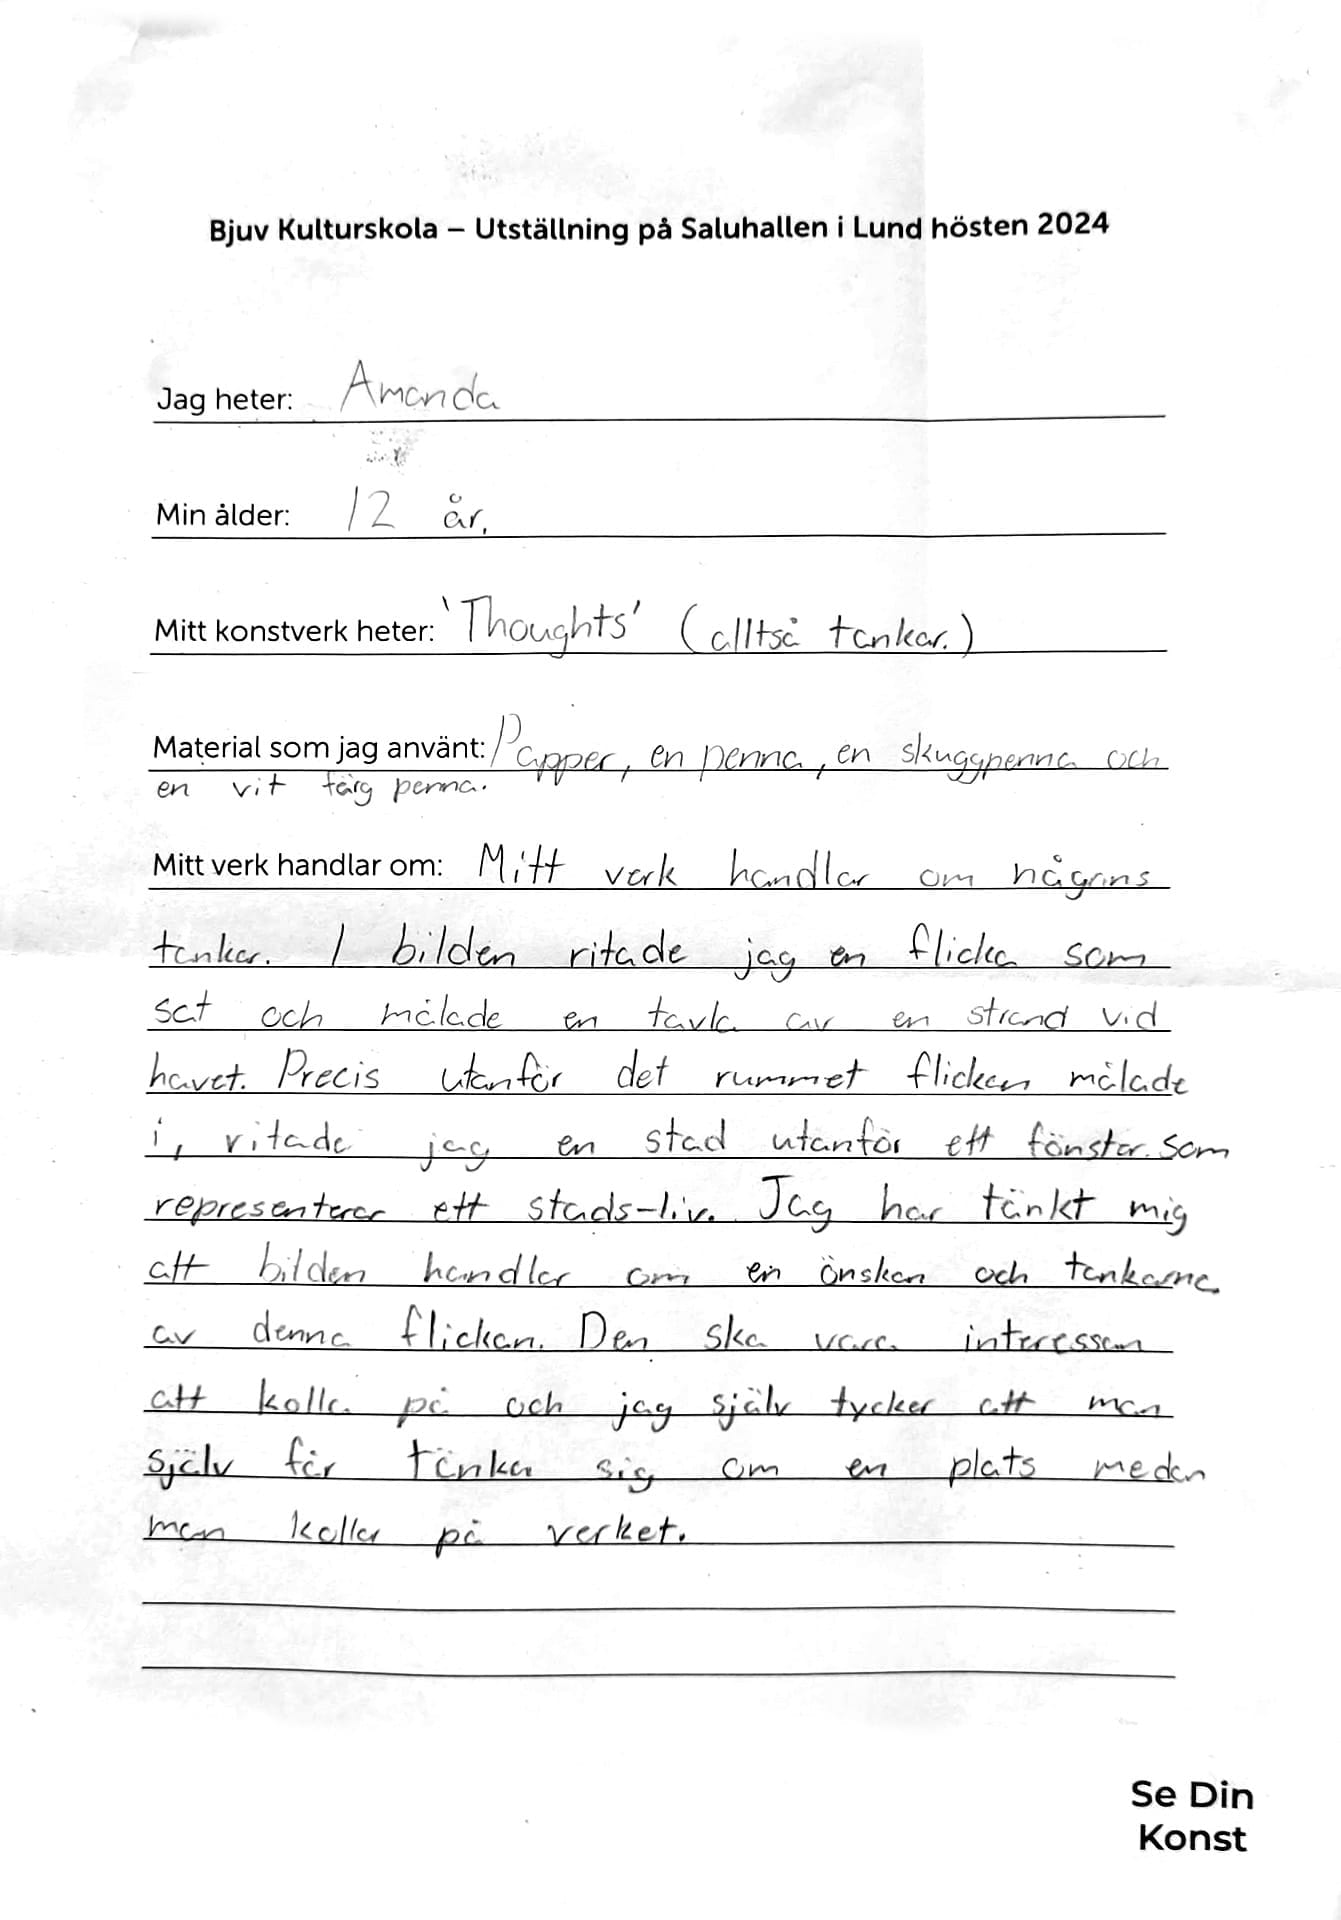 Bjuv Kulturskola – Utställning på Saluhallen i Lund hösten 2024
Jag heter: Amanda
Min ålder: 12 år.
Mitt konstverk heter: 'Thoughts' (alltså tankar.)
Material som jag använt: Papper, en penna, en skuggpenna och
en vit färg penna.
Mitt verk handlar om: Mitt verk handlar om någons
tankar. I bilden ritade jag en flicka som
sat och målade en tavla av en strand vid
havet. Precis utanför det rummet flickan målade
i, ritade jag en stad utanför ett fönster. som
representerar ett stads-liv. Jag har tänkt mig
att bilden handlar om en önskan och tankarna
av denna flickan. Den ska vara interessan
att kolla på och jag själv tycker att man
själv får tänka sig om en plats medan
man kollar på verket.
Se Din
Konst